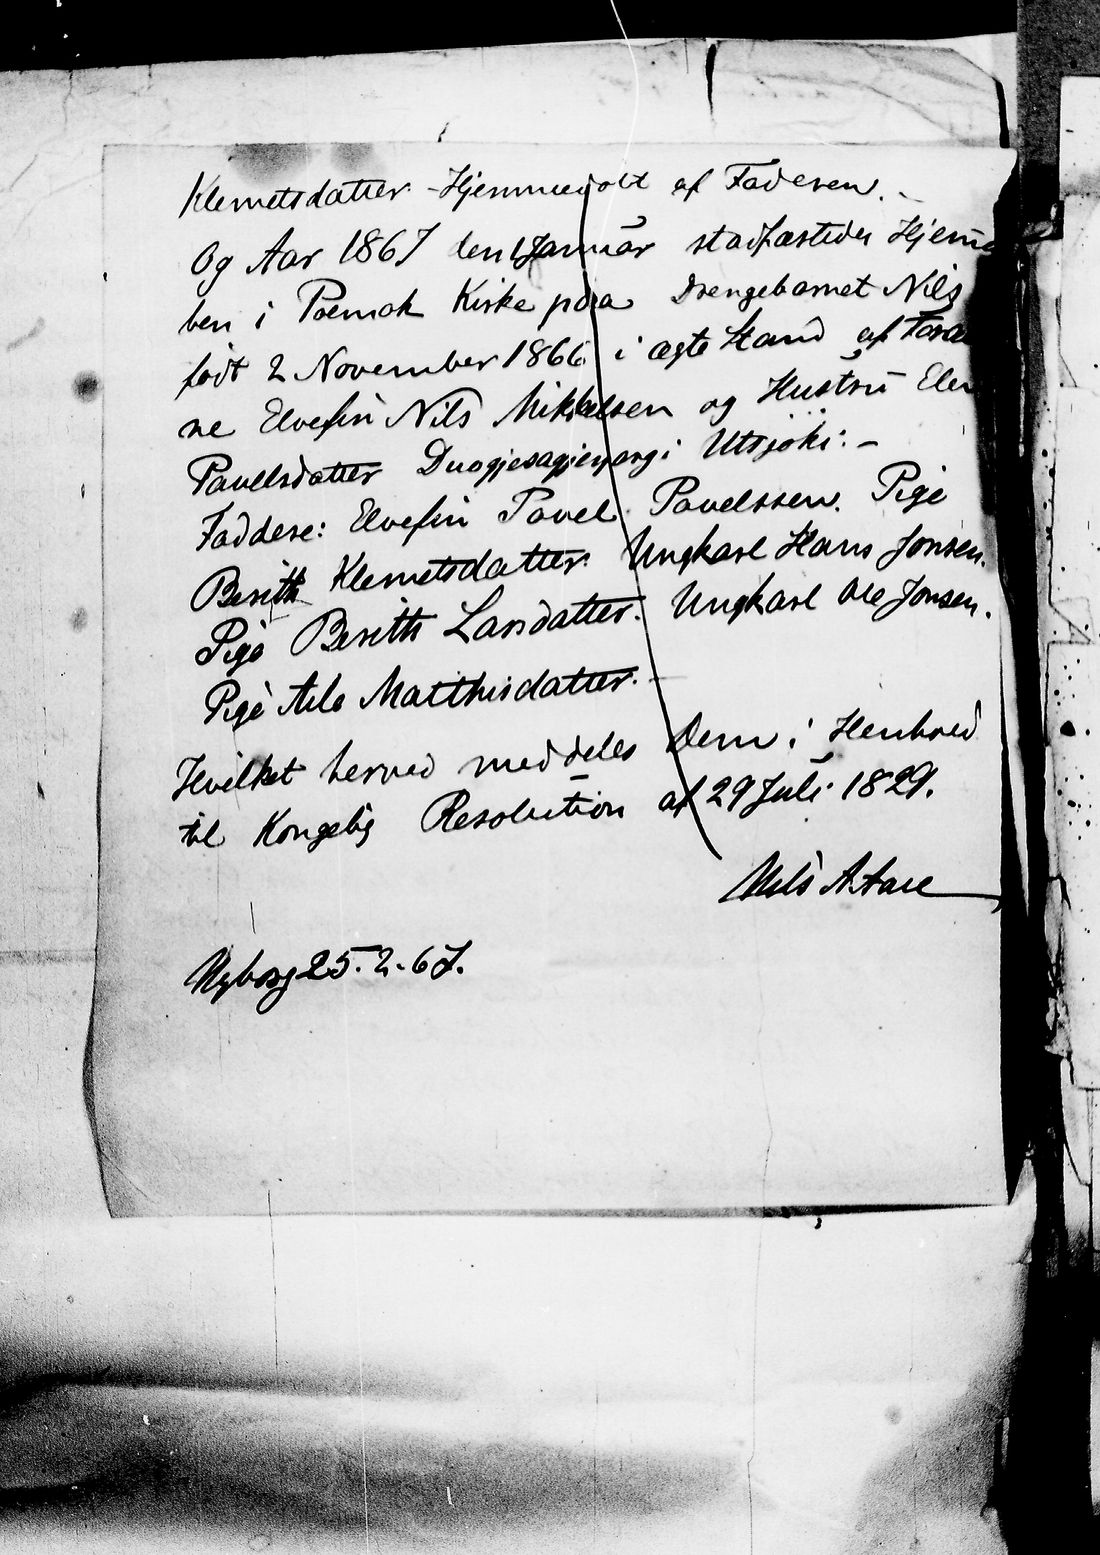 Klemetsdatter. Hjemmedøbt af Faderen. -
Og Aar 1867 den 1 Januar stadfæstedes Hjem
ben i Polmak Kirke paa Drengebarnet Nils
født 2 November 1866 i ægte Stand af Foræ
ne Elvefin Nils Mikkelsen og Hustru Elen
Pavelsdatter i Utsjoki: -
Faddere: Elvefin Pavel Pavelssen. Pige
Berith Klemetsdatter. Ungkarl Hans Jonsen.
Pige Berith Larsdatter. Ungkarl Ole Jonsen.
Pige Aile Matthisdatter. -
Hvilket herved meddeles Dem i Henhold
til Kongelig Resolution af 29 Juli 1829.
Nils A. Aare
Nyborg 25.2.67.